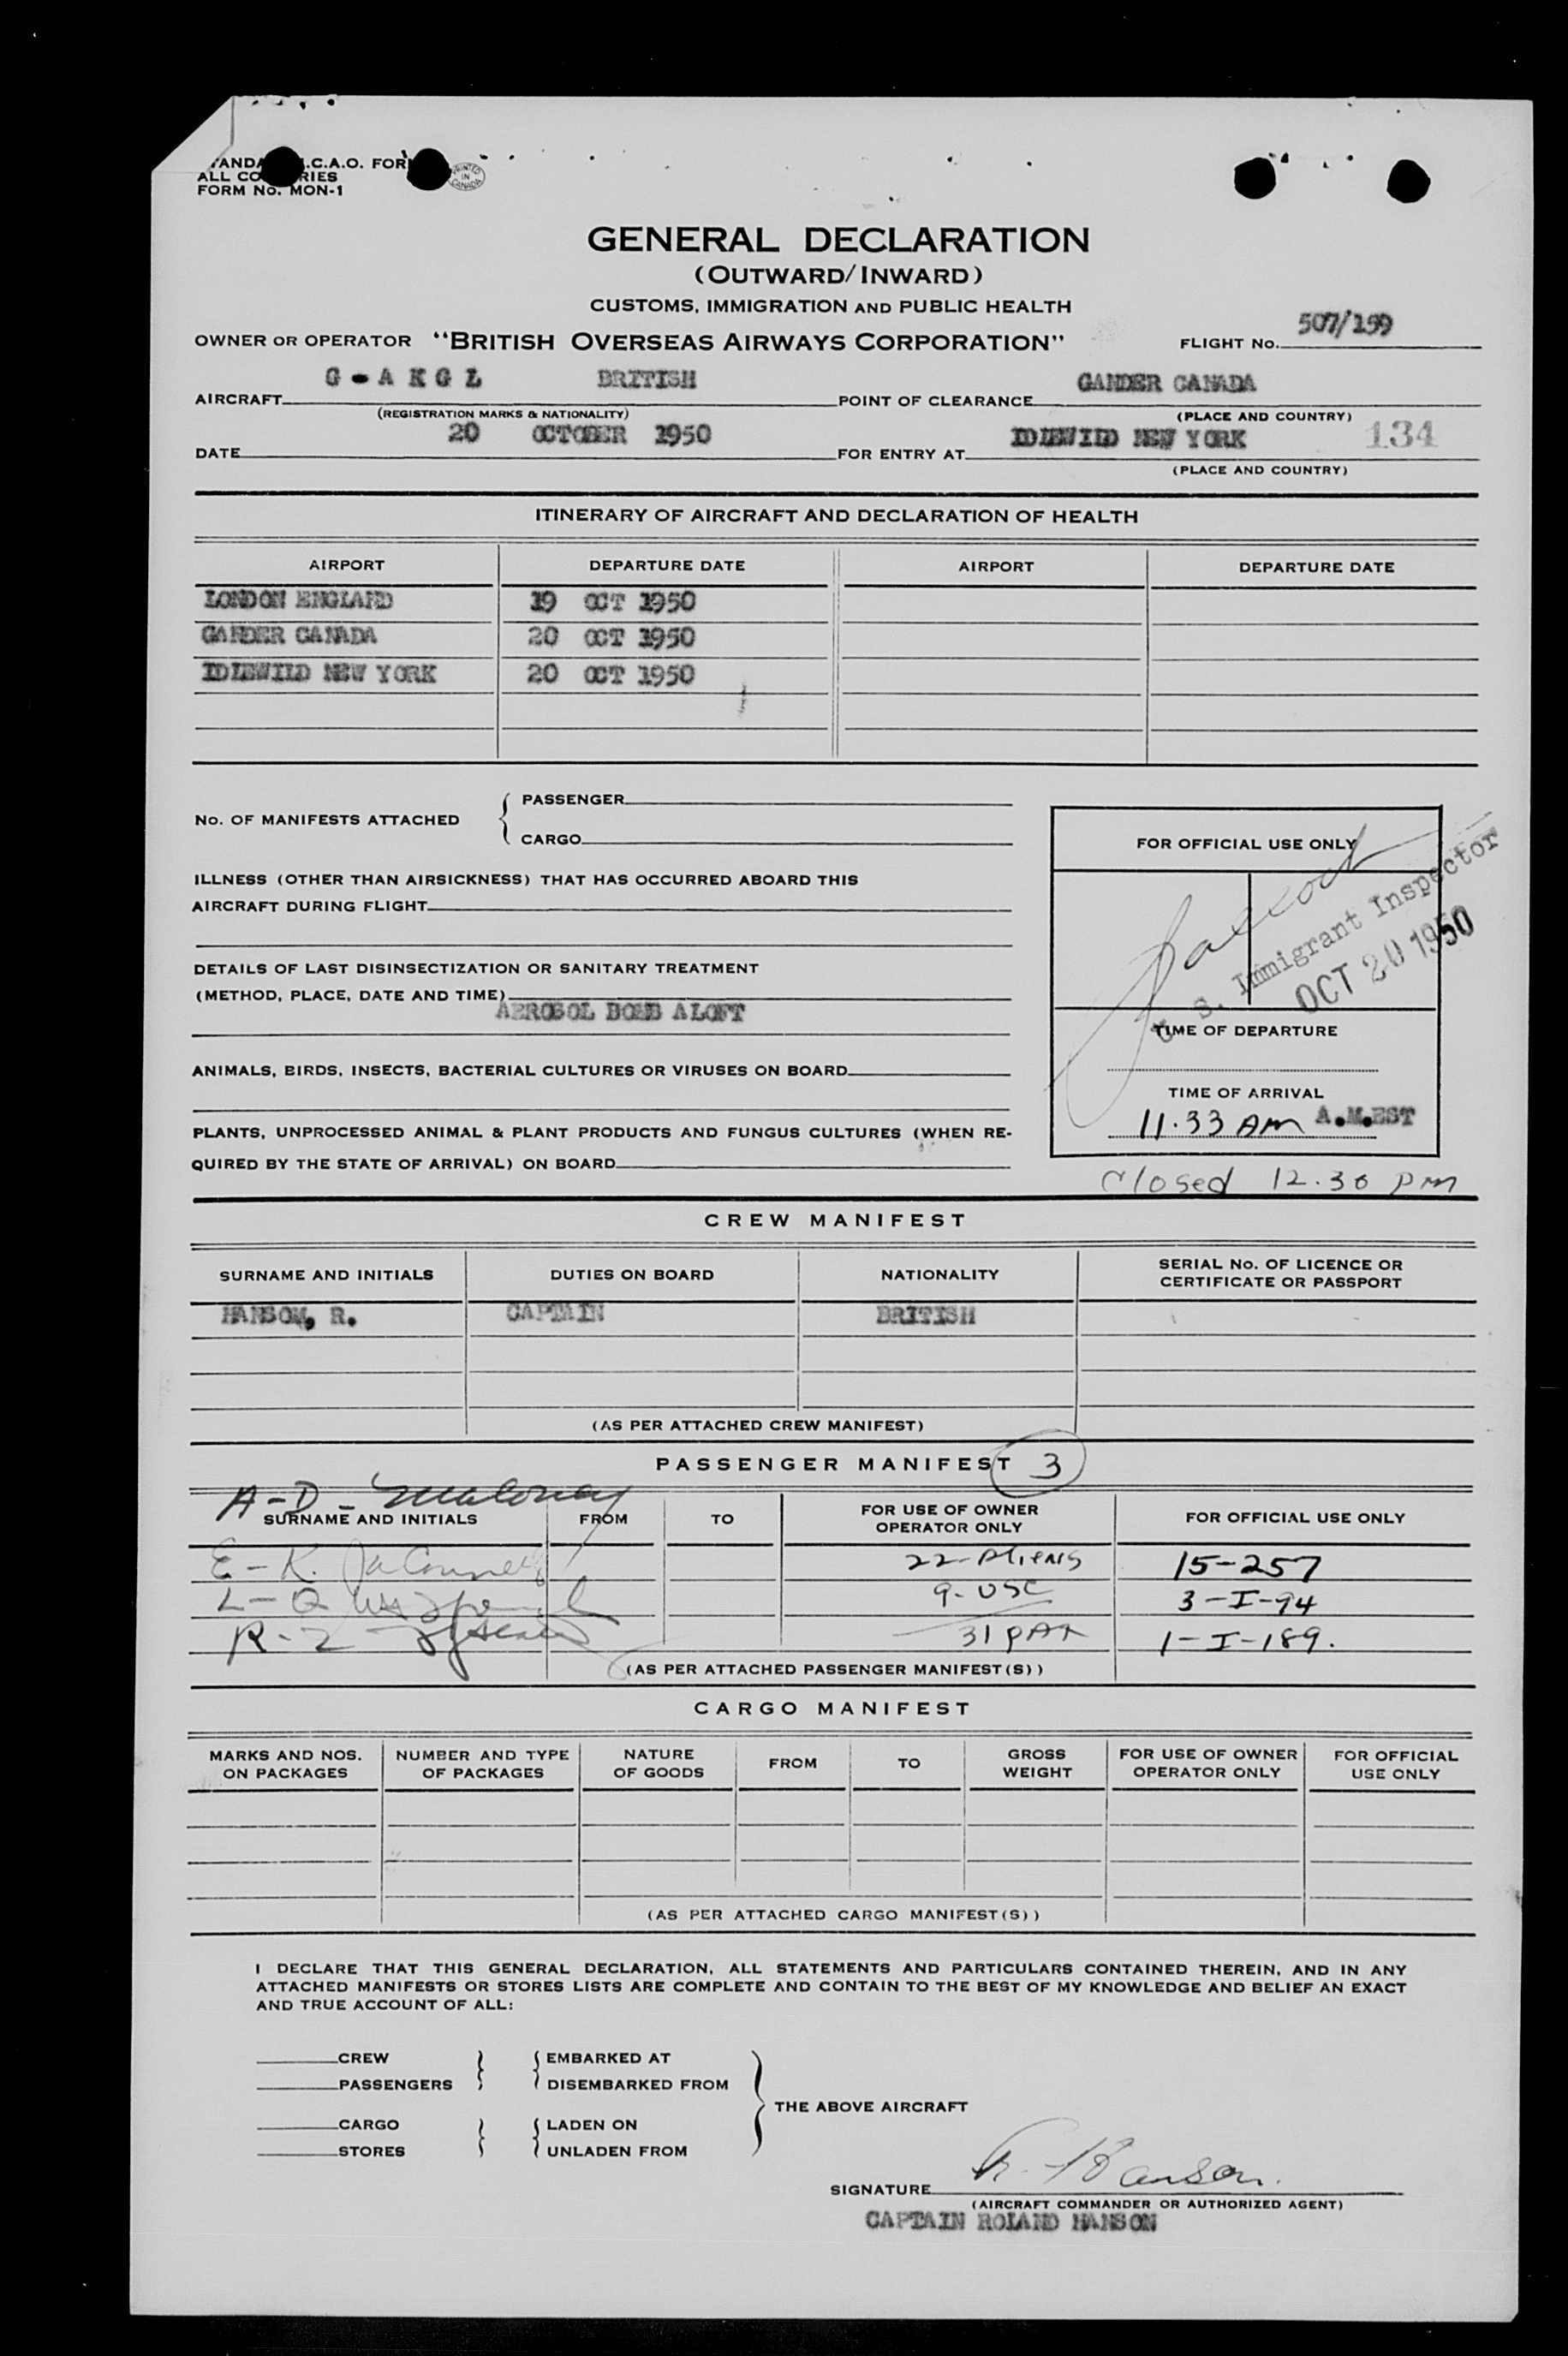 STANDARD I.C.A.O. FORM
ALL COUNTRIES
FORM No. MON-1
PRINTED IN CANADA
GENERAL DECLARATION
(OUTWARD/INWARD)
CUSTOMS, IMMIGRATION AND PUBLIC HEALTH
OWNER OR OPERATOR "BRITISH OVERSEAS AIRWAYS CORPORATION" FLIGHT No. 507/159
AIRCRAFT G-AKGL BRITISH POINT OF CLEARANCE GANDER CANADA
(REGISTRATION MARKS & NATIONALITY) (PLACE AND COUNTRY)
DATE 20 OCTOBER 1950 FOR ENTRY AT IDLEWILD NEW YORK 134
(PLACE AND COUNTRY)
ITINERARY OF AIRCRAFT AND DECLARATION OF HEALTH
AIRPORT DEPARTURE DATE AIRPORT DEPARTURE DATE
LONDON ENGLAND 19 OCT 1950
GANDER CANADA 20 OCT 1950
IDLEWILD NEW YORK 20 OCT 1950
No. OF MANIFESTS ATTACHED
PASSENGER
CARGO
ILLNESS (OTHER THAN AIRSICKNESS) THAT HAS OCCURRED ABOARD THIS
AIRCRAFT DURING FLIGHT
DETAILS OF LAST DISINSECTIZATION OR SANITARY TREATMENT
(METHOD, PLACE, DATE AND TIME)
AEROSOL BOMB ALOFT
ANIMALS, BIRDS, INSECTS, BACTERIAL CULTURES OR VIRUSES ON BOARD
PLANTS, UNPROCESSED ANIMAL & PLANT PRODUCTS AND FUNGUS CULTURES (WHEN RE-
QUIRED BY THE STATE OF ARRIVAL) ON BOARD
FOR OFFICIAL USE ONLY
U. S. Immigrant Inspector
OCT 20 1950
TIME OF DEPARTURE
TIME OF ARRIVAL
11.33 AM A.M.EST
Closed 12.30 PM
CREW MANIFEST
SURNAME AND INITIALS DUTIES ON BOARD NATIONALITY SERIAL No. OF LICENCE OR CERTIFICATE OR PASSPORT
HANSON, R. CAPTAIN BRITISH
(AS PER ATTACHED CREW MANIFEST)
PASSENGER MANIFEST 3
A-D - Maloney
SURNAME AND INITIALS FROM TO FOR USE OF OWNER OPERATOR ONLY FOR OFFICIAL USE ONLY
E-K. 22-Aliens 15-257
L-Q 9-USC 3-I-94
R-Z 31 PAX 1-I-189.
(AS PER ATTACHED PASSENGER MANIFEST(S))
CARGO MANIFEST
MARKS AND NOS. ON PACKAGES NUMBER AND TYPE OF PACKAGES NATURE OF GOODS FROM TO GROSS WEIGHT FOR USE OF OWNER OPERATOR ONLY FOR OFFICIAL USE ONLY
(AS PER ATTACHED CARGO MANIFEST(S))
I DECLARE THAT THIS GENERAL DECLARATION, ALL STATEMENTS AND PARTICULARS CONTAINED THEREIN, AND IN ANY
ATTACHED MANIFESTS OR STORES LISTS ARE COMPLETE AND CONTAIN TO THE BEST OF MY KNOWLEDGE AND BELIEF AN EXACT
AND TRUE ACCOUNT OF ALL:
CREW EMBARKED AT
PASSENGERS DISEMBARKED FROM
THE ABOVE AIRCRAFT
CARGO LADEN ON
STORES UNLADEN FROM
SIGNATURE R. Hanson.
(AIRCRAFT COMMANDER OR AUTHORIZED AGENT)
CAPTAIN ROLAND HANSON